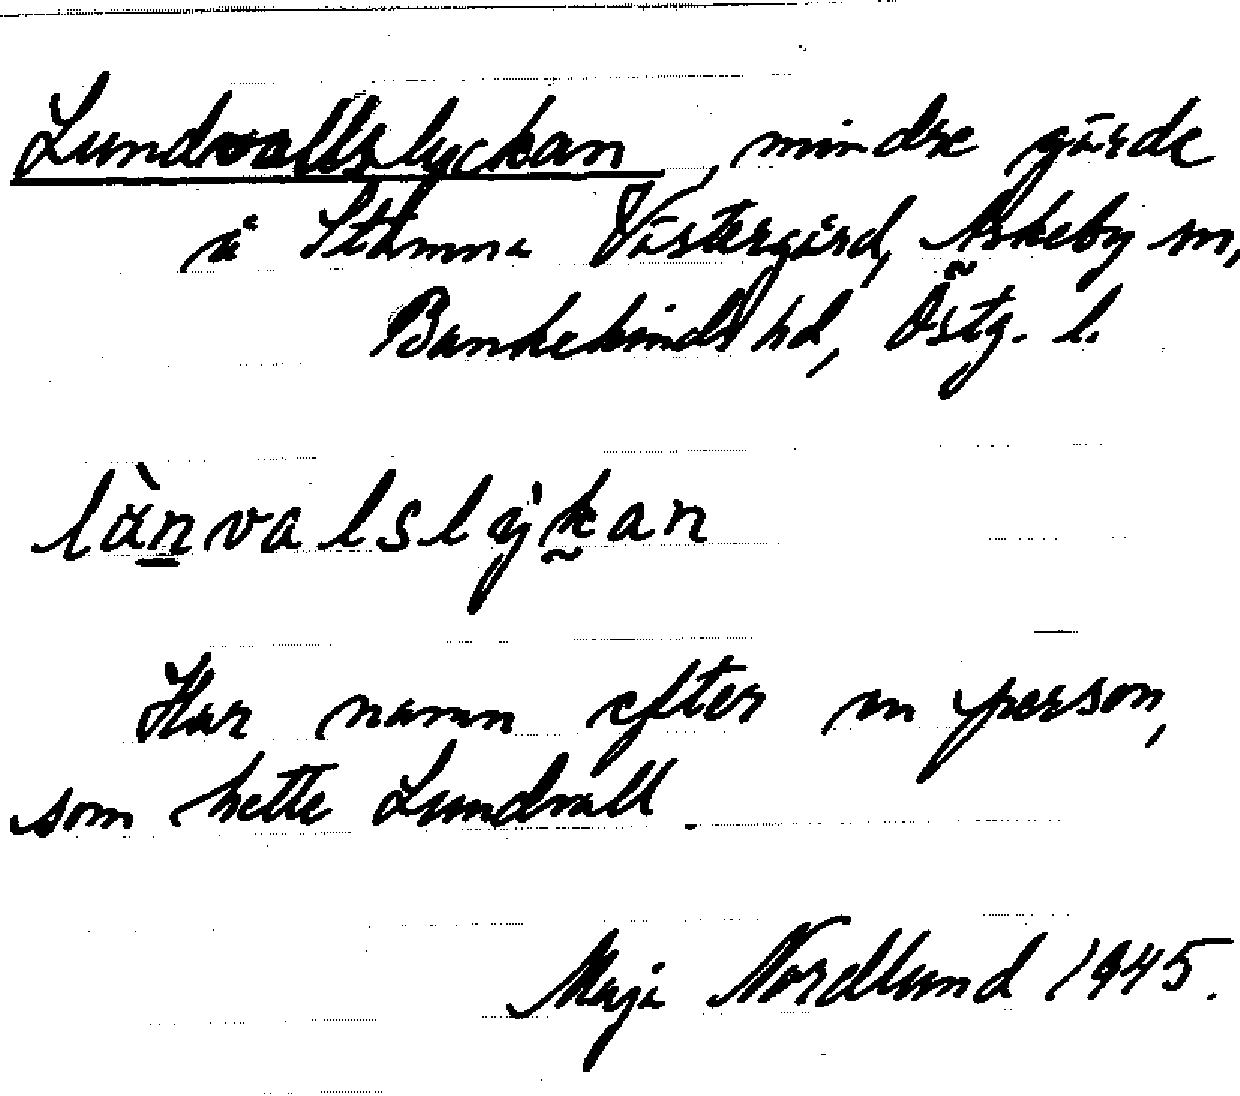 Lundvallslyckan, mindre gärde
å Stämma Västergård, Askeby sn,
Bankekinds hd, Östg. l.
lànvalslykan
Har namn efter en person,
som hette Lundvall.
Maja Nordlund 1945.